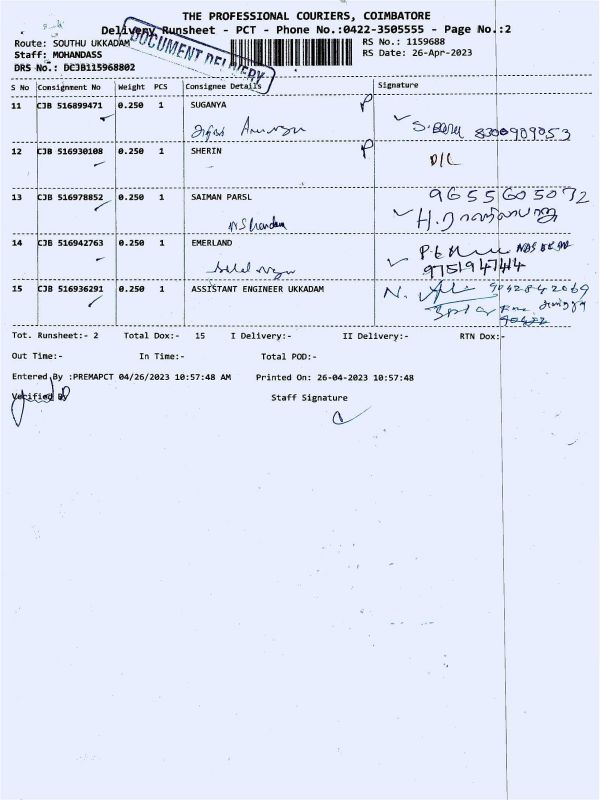 THE PROFESSIONAL COURIERS, COIMBATORE
Delivery Runsheet - PCT - Phone No.:0422-3505555 - Page No.:2
Route: SOUTHU UKKADAM
RS No.: 1159688
Staff: MOHANDASS
RS Date: 26-Apr-2023
DRS No.: DCJB115968802
DOCUMENT DELIVERY
S No Consignment No Weight PCS Consignee Details Signature
11 CJB 516899471 0.250 1 SUGANYA P
8300909053
12 CJB 516930108 0.250 1 SHERIN P
D/L
13 CJB 516978852 0.250 1 SAIMAN PARSL
9655605072
14 CJB 516942763 0.250 1 EMERLAND
9751947414
15 CJB 516936291 0.250 1 ASSISTANT ENGINEER UKKADAM
N. 9042842069
Tot. Runsheet:- 2 Total Dox:- 15 I Delivery:- II Delivery:- RTN Dox:-
Out Time:- In Time:- Total POD:-
Entered By :PREMAPCT 04/26/2023 10:57:48 AM Printed On: 26-04-2023 10:57:48
Verified By Staff Signature